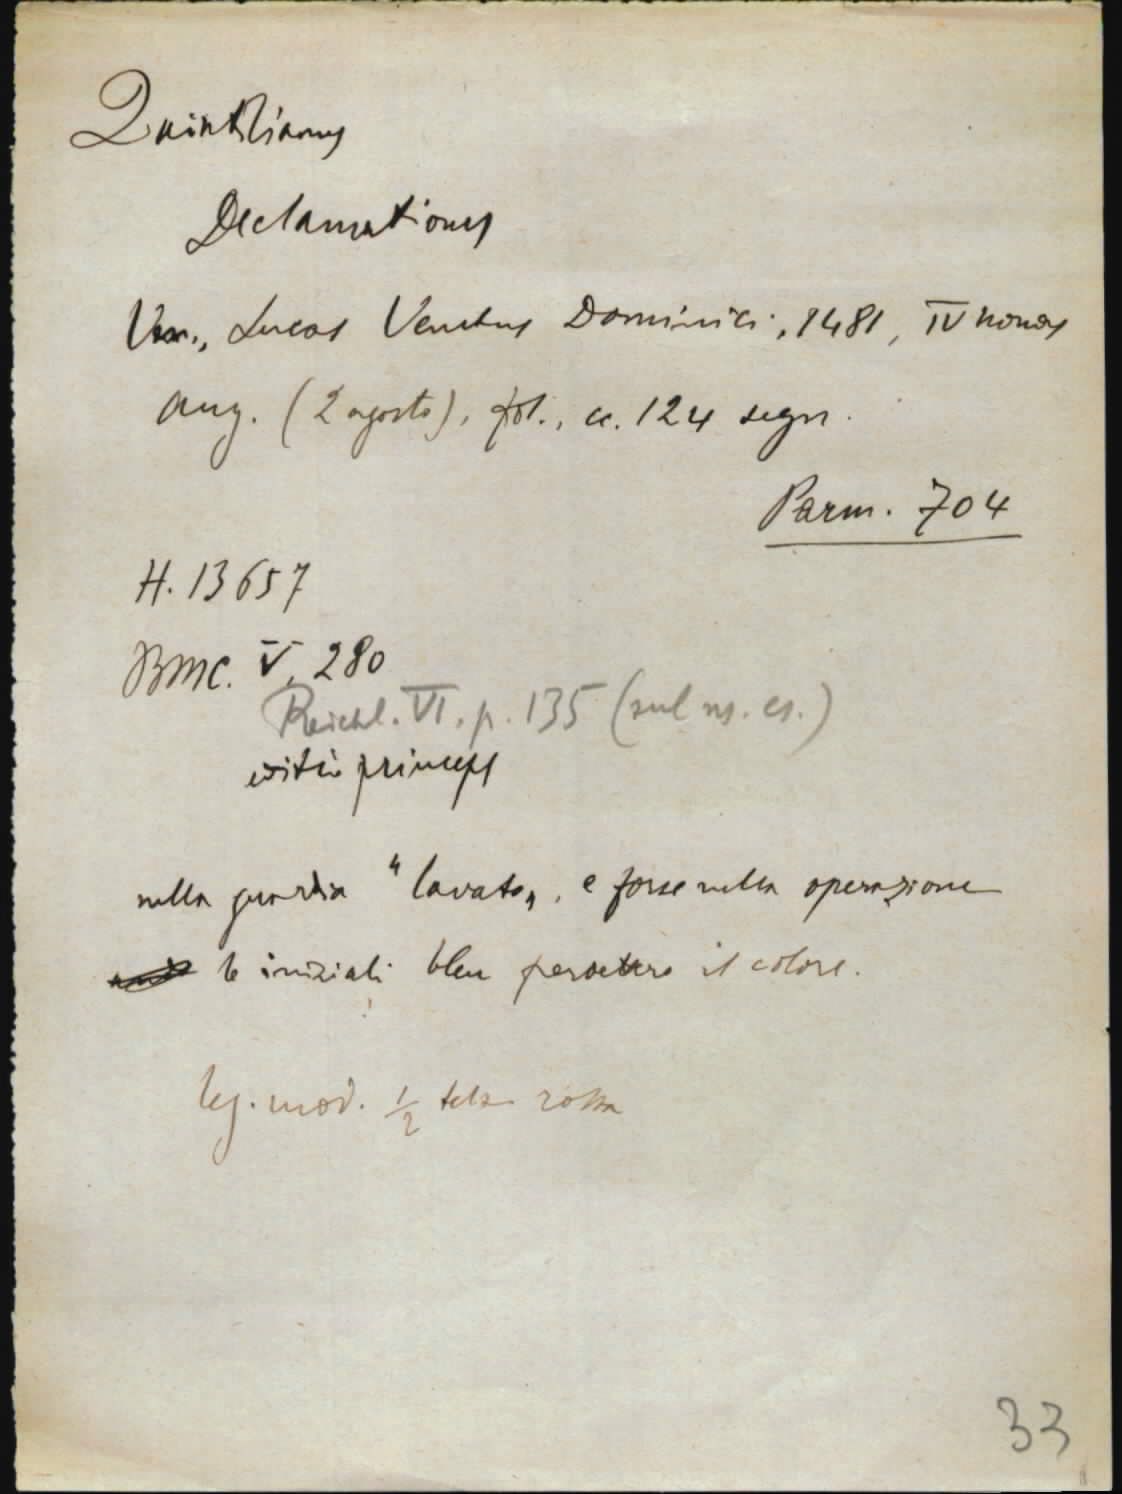 Quintilianus
Declamationes
Ven., Lucas Venetus Dominici, 1481, IV nonas
Aug. (2 agosto), fol., cc. 124 segn.
Parm. 704
H. 13657
BMC. V, 280
Reichl. VI. p. 135 (sul ns. es.)
editio princeps
nella guardia "lavato", e forse nella operazione
le iniziali bleu perdettero il colore.
leg. mod. 1/2 tela rossa
33